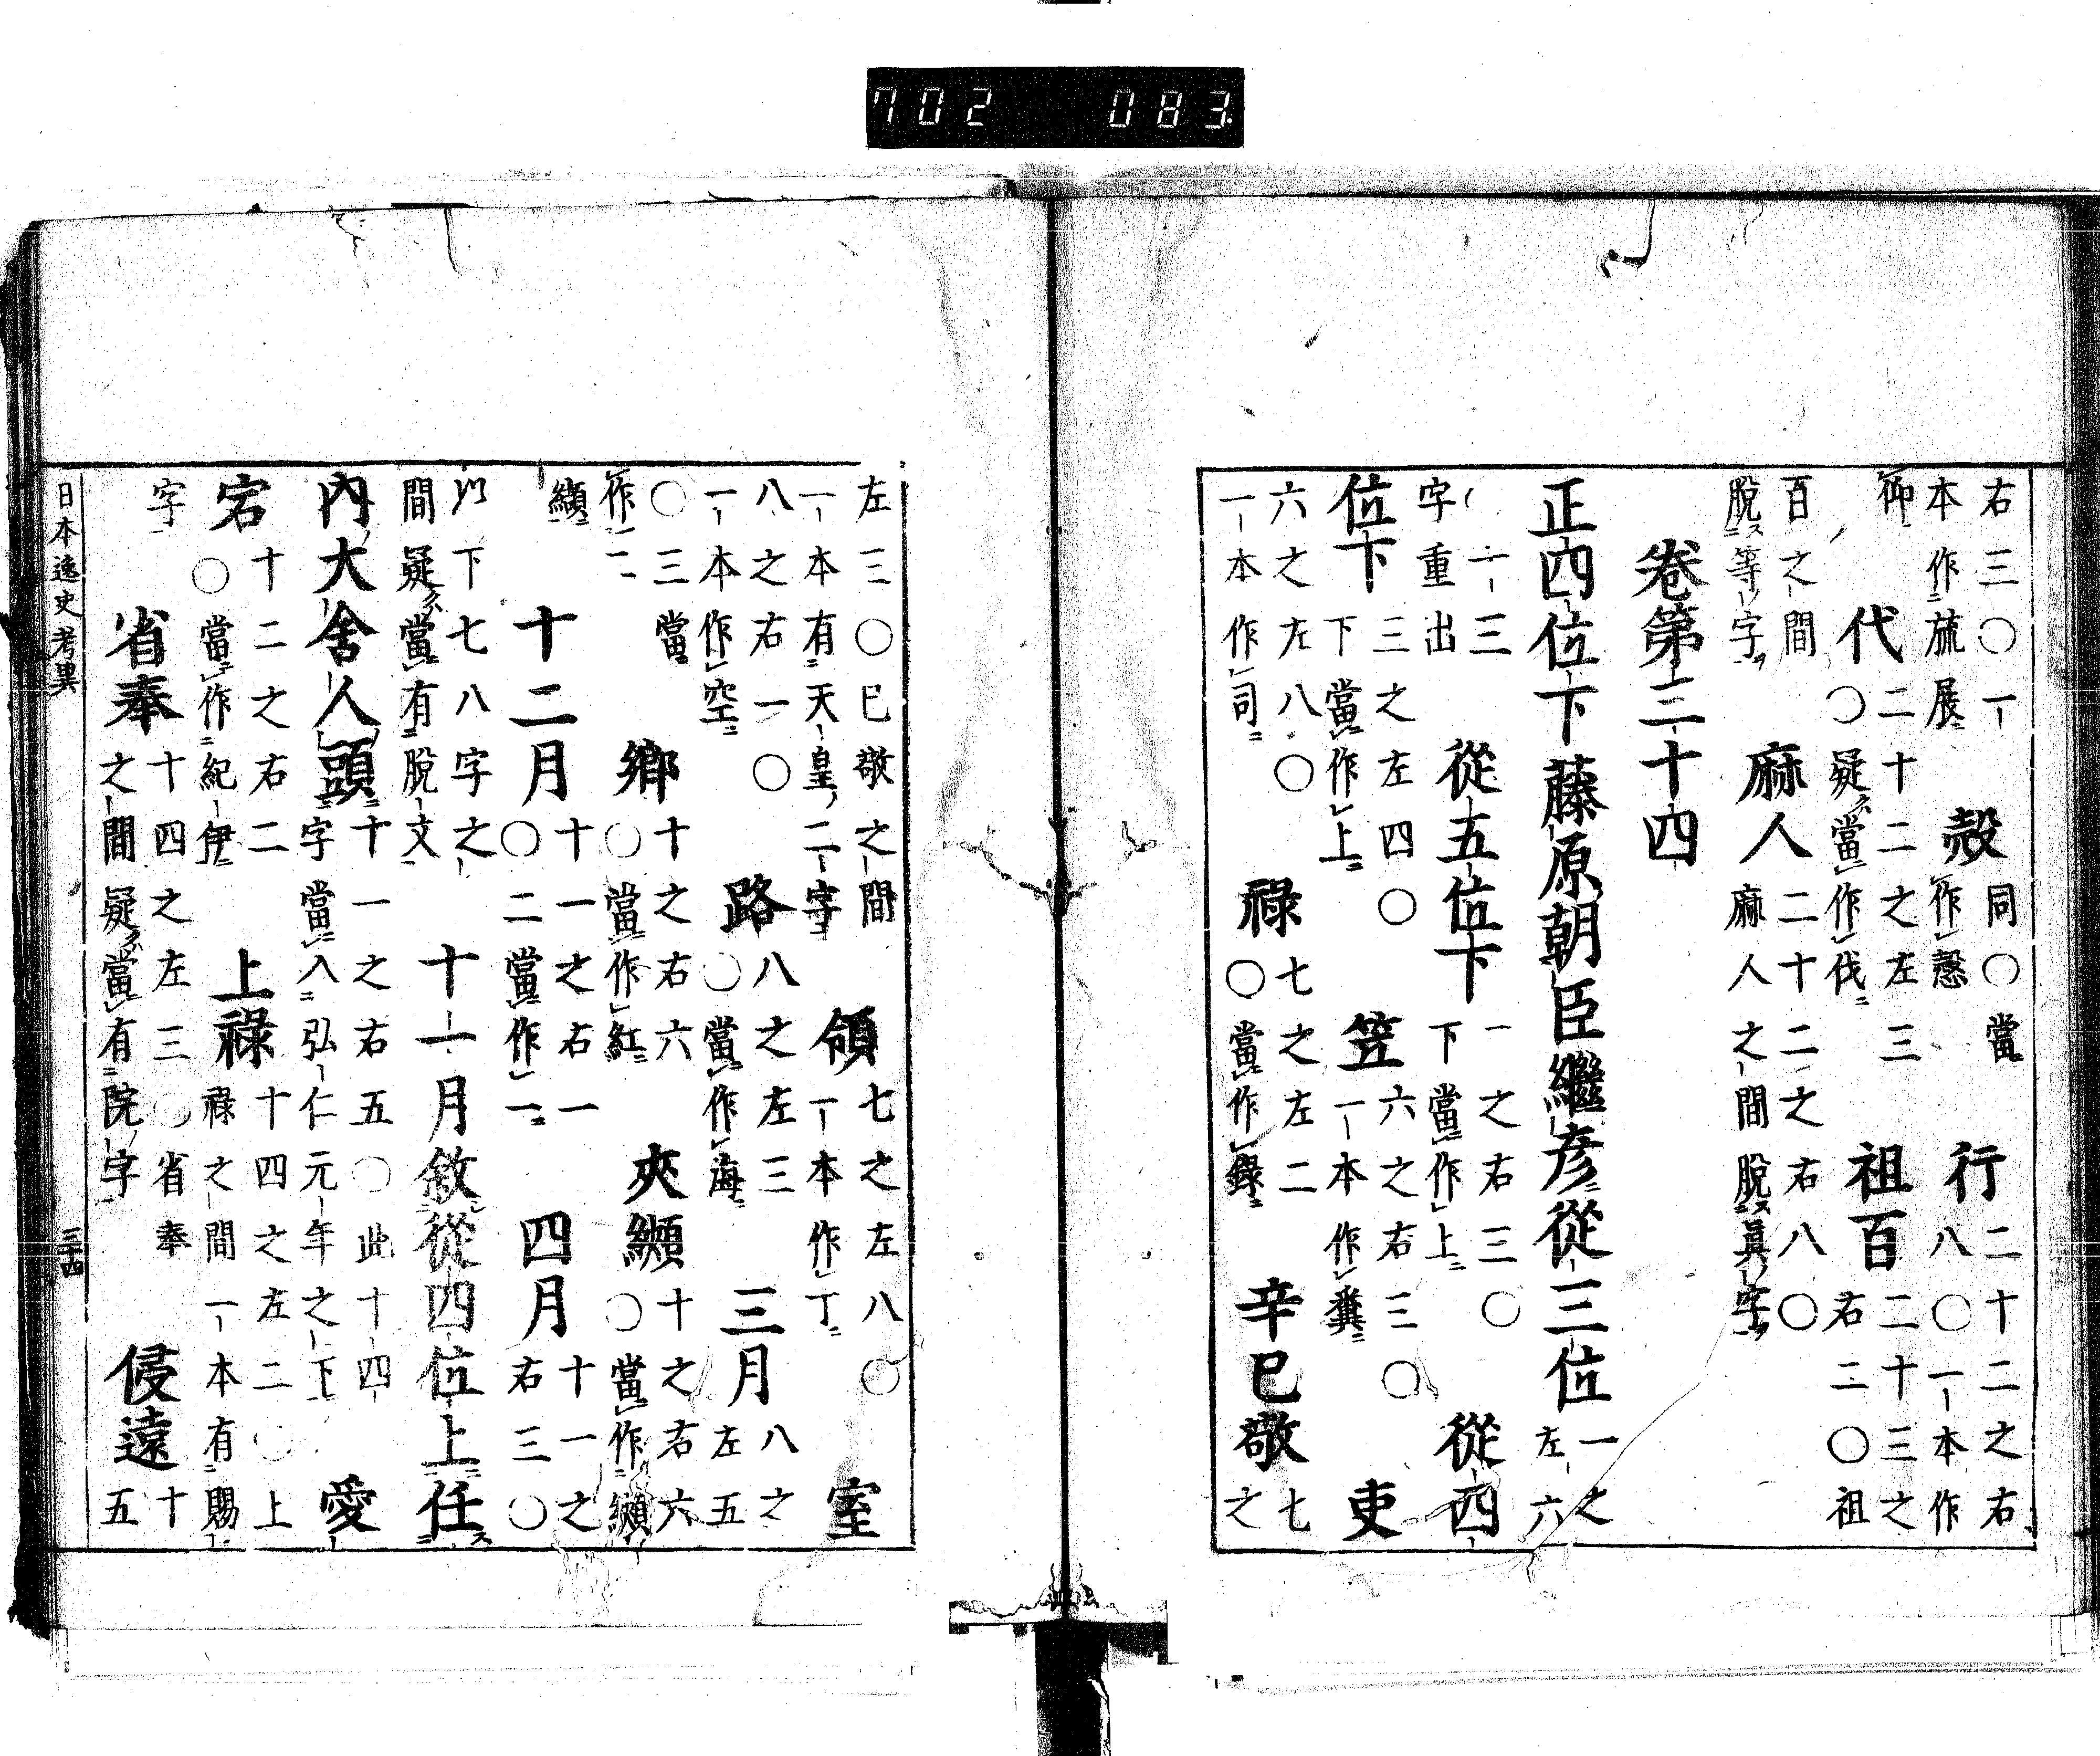 右三〇一本作旒展 殼同〇當作愨 行二十二之右八〇一本作
仰 代二十二之左三〇疑當作伐 祖百二十三之右二〇祖
百之間脫ス等ノ字ヲ 麻人二十二之右八〇麻人之間脫ス眞ノ字ヲ
卷第三十四
正四位下藤原朝臣繼彥從三位一之左六
一三字重出 從五位下一之右三〇下當作上 從四
位下三之左四〇下當作上 笠六之右三〇一本作糞 吏
六之左八〇一本作司 祿七之左二〇當作錄 辛巳敬七之
左三〇巳敬之間一本有天皇ノ二字 領七之左八〇一本作丁 室
八之右一〇一本作空 路八之左三〇當作海 三月八之左五
〇三當作二 鄉十之右六〇當作紅 夾纐十之右六〇當作纈
纐 十二月十一之右一〇二當作一 四月十一之右三〇
以下七八字之間疑當有脫文 十一月敘從四位上任ス
內大舍人頭十一之右五〇此十四字當入弘仁元年之下 愛
宕十二之右二〇當作紀伊 上祿十四之左二〇上祿之間一本有賜
字 省奉十四之左三〇省奉之間疑當有院字 侵遠十五
日本逸史考異 三十四
702 083